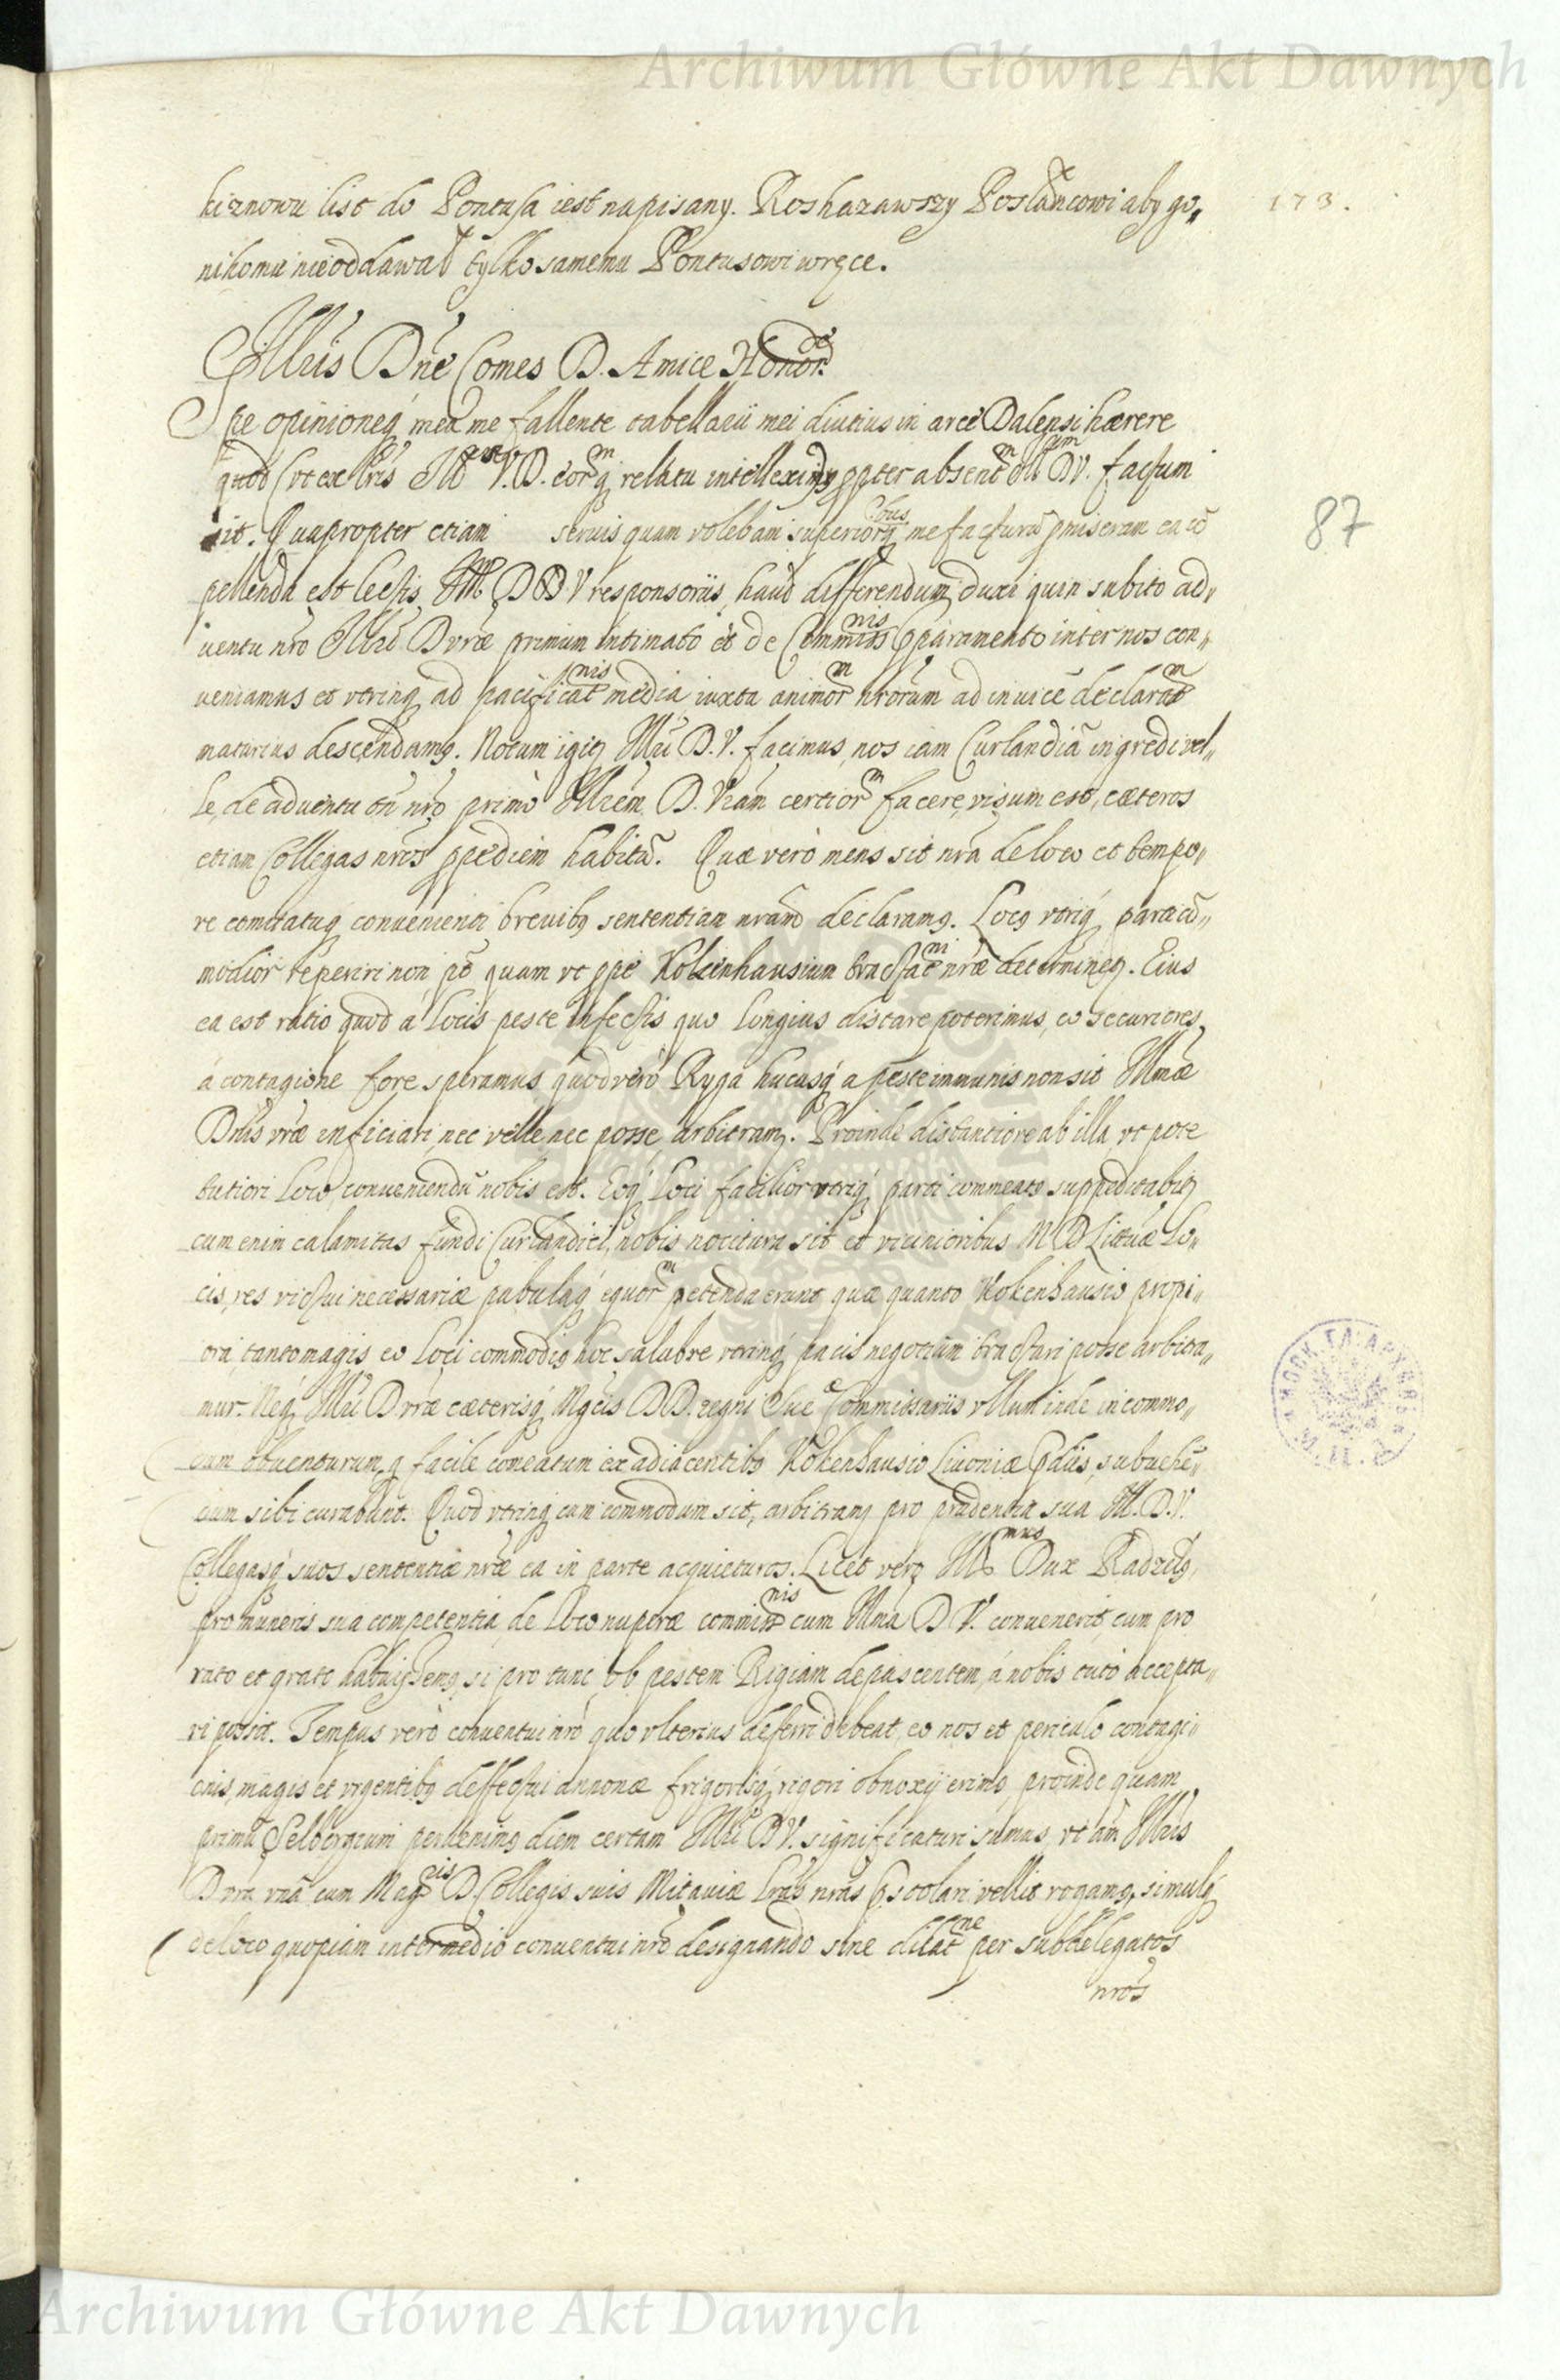 Archiwum Główne Akt Dawnych
ki znowu list do Pontusa iest napisany. Roskazawszy Posłancowi aby go„
173.
nikomu nieoddawał tylko samemu Pontusowi wręce.
Illris Dne Comes D. Amice Honor.
Spe opinioneq mea me fallente tabellarii mei diutius in arce Dalensi hærere
quod (vt ex lris Ill V. D. eorq relatu intelleximus ppter absent Ill D V. factum
87
sit. Quapropter etiam servis quam volebam superiorq me facturu pmiseram ea co
pellenda est lectis Ill D D V responsoriis, haud differendum duxi quin subito ad„
uentu nro Illri D vræ primum intimato et de Commiss pparamento inter nos con„
ueniamus et vtrinq ad pacificat media iuxta animor nrorum ad inuice declarat
maturius descendamq. Notum igitr Illri D. V. facimus, nos iam Curlandia ingredi vel„
le, de aduentu tn nro primo Illrem D. Vram certior facere, visum est, cæteros
etiam Collegas nros ppediem habitu. Quæ vero mens sit nra de loco et tempo„
re comitatuq conuenienti breuibq sententiam nram declaramq. Locq vtriq parti co„
modior reperiri non pt quam vt ppe Kokenhausium tractat nræ determinetr. Eius
ea est ratio quod a locis peste infectis quo longius distare poterimus, eo securiores
a contagione fore speramus quod vero Ryga hucusq a peste immunis non sit Illmæ
Dnis vræ inficiari, nec velle nec posse arbitramr. Proinde distantiore ab illa, vt pote
tutiori loco, conueniendu nobis est. Eoq loci facilior vtriq parti commeatq suppeditabitr
cum enim calamitas fundi Curlandici, nobis nocitura sit et vicinioribus M D Lituæ lo„
cis, res victui necessariæ pabulaq equor petenda erunt quæ quanto Kokenhausio propi„
ora, tanto magis eo loci commodiq hoc salubre vtrinq pacis negotium tractari posse arbitra„
mur. Neq Illri D vræ cæterisq Mgcis DD. regni Sue Commissariis vllum inde incommo„
dum obuenturum, q facile comeatum ex adiacentibq Kokenhausio Liuoniæ pdiis, subuehe„
dum sibi curabunt. Quod vtrinq cum commodum sit, arbitramr pro prudentia sua Ill. D. V.
Collegasq suos sententiæ nræ ea in parte acquieturos. Licet vero Ills Dux Radziuil,
pro muneris sua competentia, de loco nuperæ commiss cum Illma D V. conuenerit, cum pro
rato et grato habuissemq, si pro tunc ob pestem Rigiam depascentem, á nobis tuto accepta„
ri possit. Tempus vero conuentui nro quo vlterius deferri debeat, eo nos et periculo contagi„
onis, magis et vrgentibq deffectui annonæ frigorisq, rigori obnoxij erimq, proinde quam
primu Selborgium peruenimq diem certam Illri D V. significaturi sumus, vt am Illris
D vra vna cum Mag D Collegis suis Mitauiæ lras nras pstolari vellit rogamq, simulq
de loco quopiam intermedio conuentui nro designando sine dilat per subdelegatos
nros
Archiwum Główne Akt Dawnych